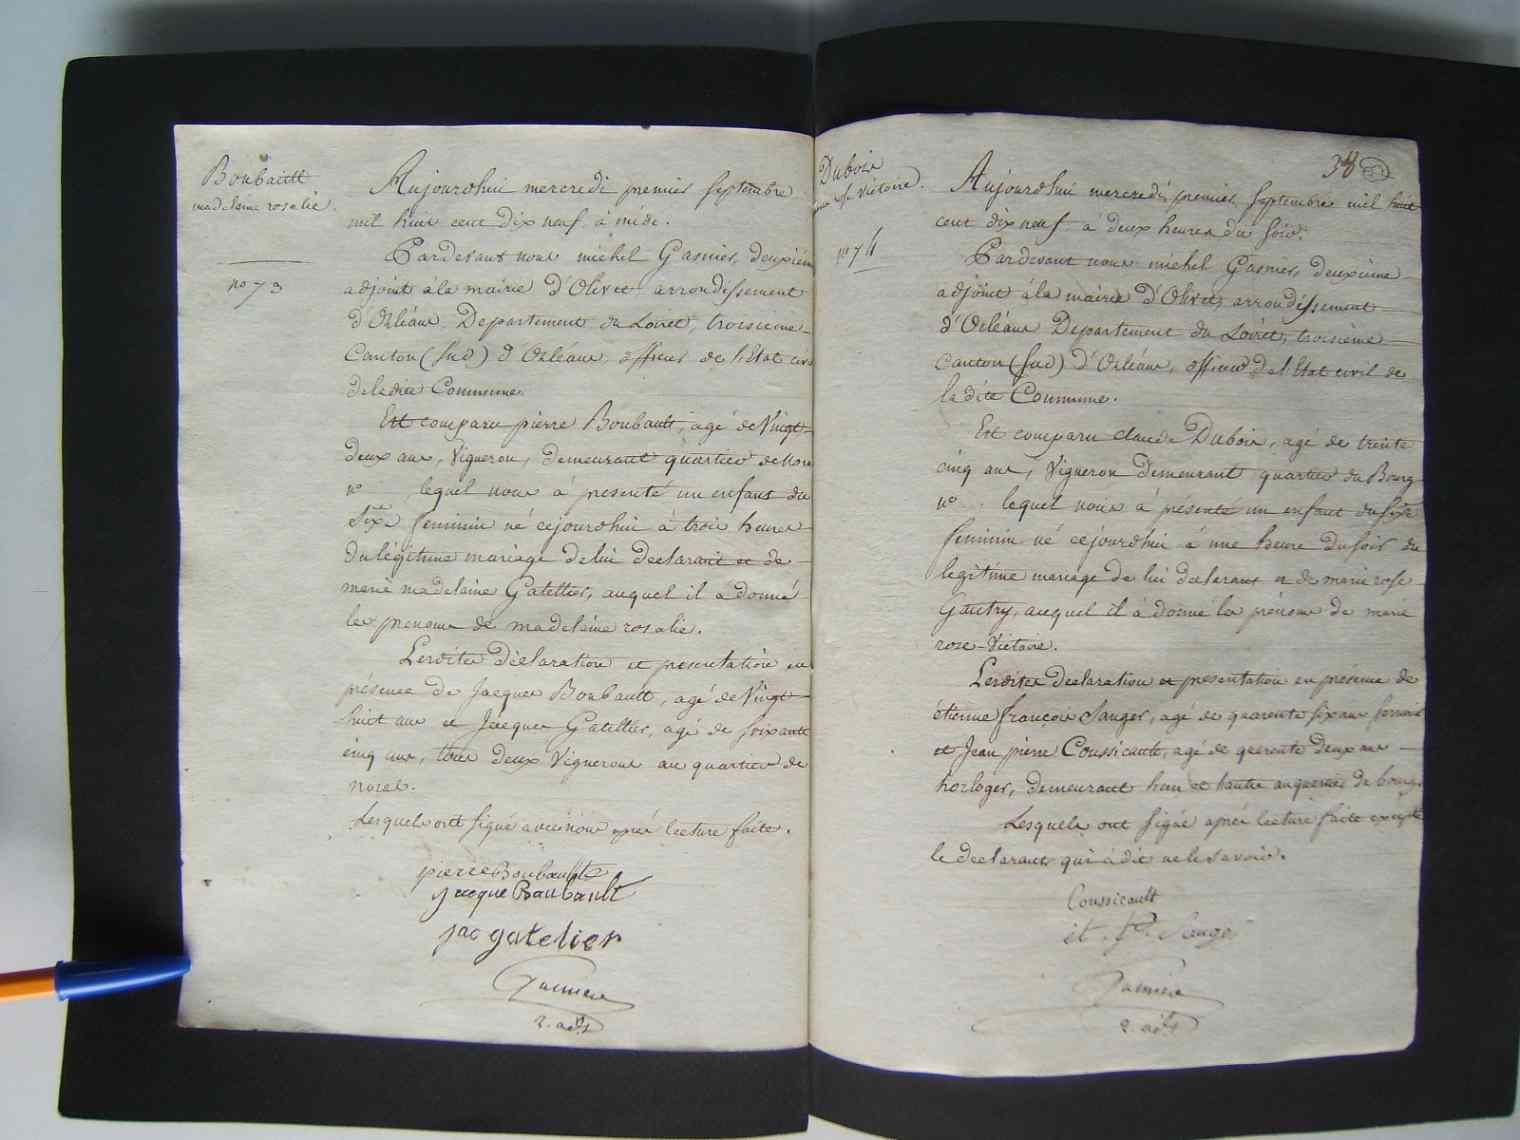 Boubault
madeleine rosalie
no 73
Aujourdhui mercredi premier septembre
mil huit cent dix neuf à midi.
Pardevant nous michel Gasnier, deuxième
adjoint à la mairie d'Olivet arrondissement
d'Orléans Departement du Loiret, troisième
Canton (sud) d'Orléans officier de l'Etat civil
de la dite Commune.
Est comparu pierre Boubault, agé de Vingt
deux ans, Vigneron, demeurant quartier de
no lequel nous à presenté un enfant du
Sixe feminin né cejourdhui à trois heures
du légitime mariage de lui declarant et de
marie madeleine Gatellier, auquel il a donné
les prenoms de madeleine rosalie.
Lesdites déclaration et presentation en
présence de Jacques Boubault, agé de Vingt
huit ans et Jacques Gatellier, agé de soixante
cinq ans, tous deux Vignerons au quartier de
Lesquels ont signé avec nous aprés lecture faite.
pierre Boubault
jacque Boubault
jac gatelier
Gasnier
2. adjt
38
Dubois
rose Victoire.
no 74
Aujourdhui mercredi premier Septembre mil huit
cent dix neuf à deux heures du soir.
Pardevant nous michel Gasnier, deuxième
adjoint à la mairie d'Olivet, arrondissement
d'Orléans Departement du Loiret, troisième
canton (sud) d'Orléans, officier de l'Etat civil de
la dite Commune.
Est comparu claude Dubois, agé de trente
cinq ans, Vigneron demeurant quartier du Bourg
no lequel nous à présenté un enfant du sixe
feminin né cejourdhui à une heure du soir du
legitime mariage de lui declarant et de marie rose
Gautry, auquel il à donné les prénoms de marie
rose Victoire.
Lesdites declaration et presentation en présence de
étienne françois Sauger, agé de quarente six ans
et Jean pierre Coussicault, agé de quarente deux ans
horloger, demeurant l'un et l'autre au quartier du bourg.
Lesquels ont signé aprés lecture faite excepté
le declarant qui à dit ne le savoir.
Coussicault
et. fs. Sauger
Gasnier
2 adjt